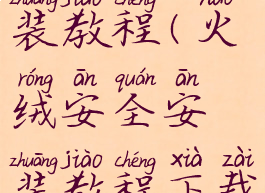 zhuāng jiào chéng huǒ
装教程(火
róng ān quán ān
绒安全安
zhuāng jiào chéng xià zài
装教程下载